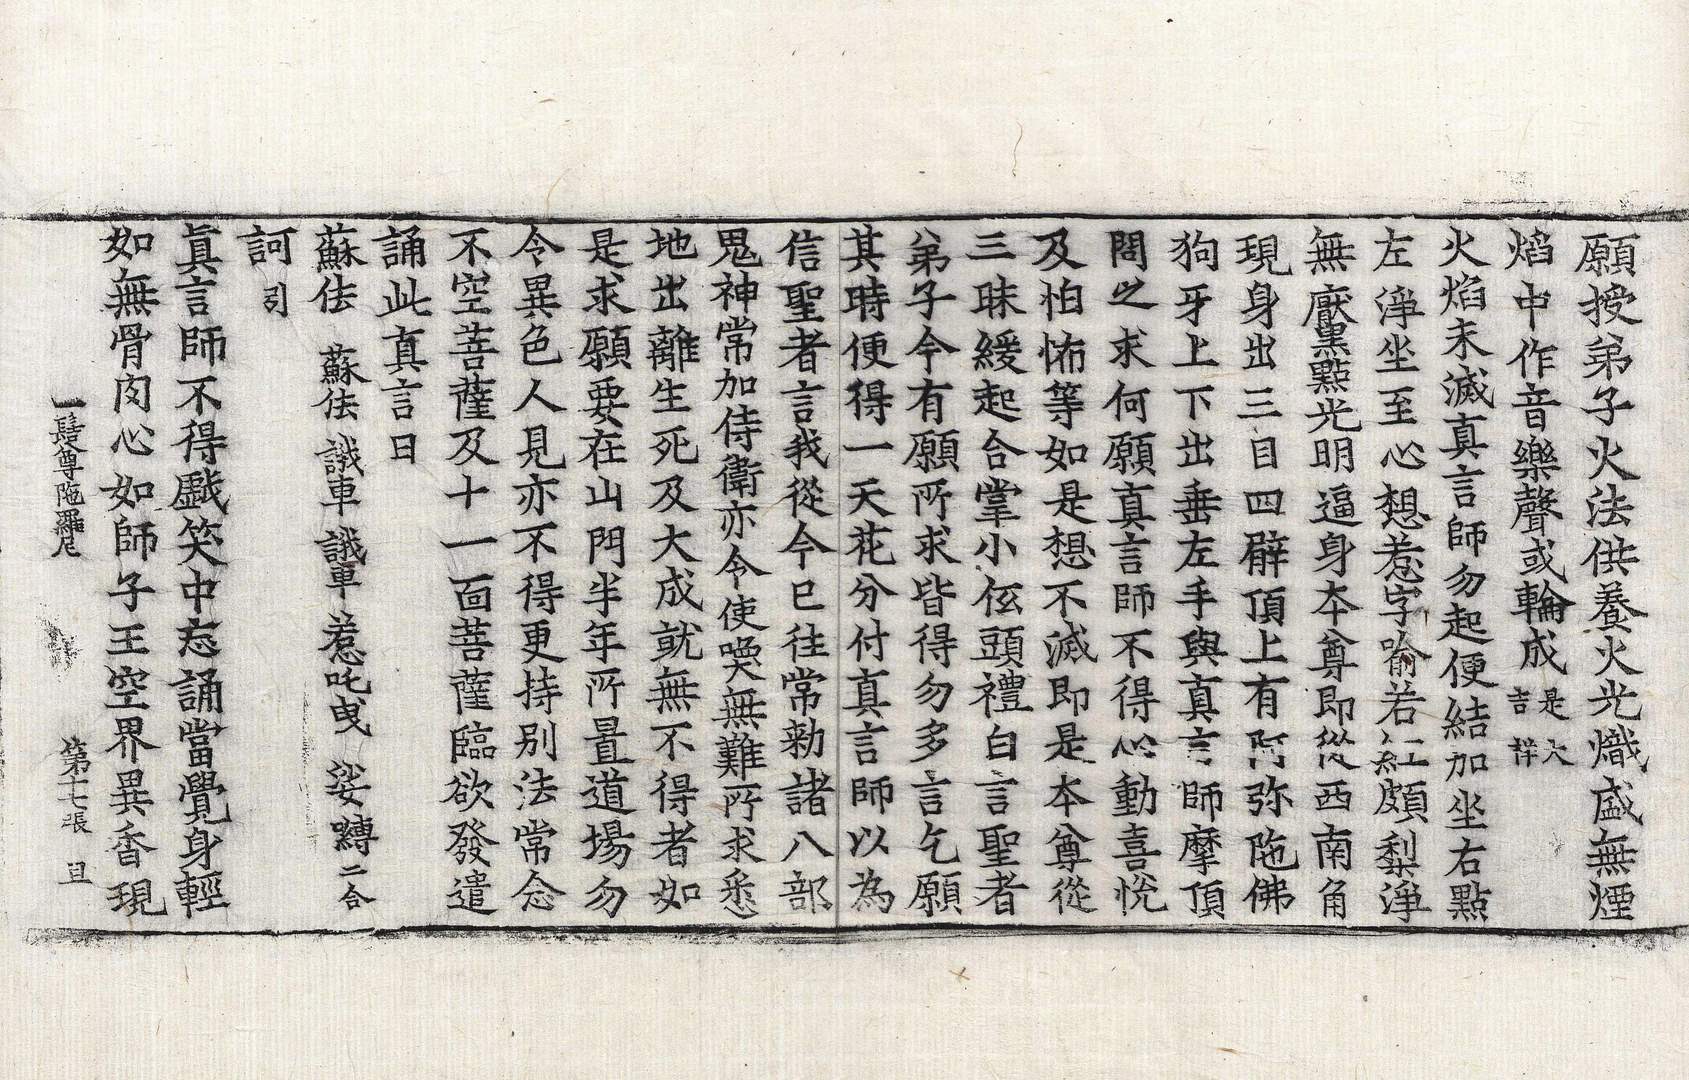 願授弟子火法供養火光熾盛無煙
焰中作音樂聲或輪成是大吉祥
火焰未滅真言師勿起便結加坐右點
左淨坐至心想惹字喻若紅頗梨淨
無壓黑點光明逼身本尊即從西南角
現身出三目四臂頂上有阿弥陁佛
狗牙上下出垂左手與真言師摩頂
問之求何願真言師不得心動喜悅
及怕怖等如是想不滅即是本尊從
三昧緩起合掌小伭頭禮白言聖者
弟子今有願所求皆得勿多言乞願
其時便得一天花分付真言師以為
信聖者言我從今已往常勑諸八部
鬼神常加侍衛亦令使喚無難所求悉
地出離生死及大成就無不得者如
是求願要在山門半年所置道場勿
令異色人見亦不得更持別法常念
不空菩薩及十一面菩薩臨欲發遣
誦此真言曰
蘇佉 蘇佉 誐車 誐車 惹吒曵 娑嚩二合
訶引
真言師不得戲笑中忘誦當覺身輕
如無骨肉心如師子王空界異香現
一髻尊陁羅尼 第十七張 旦